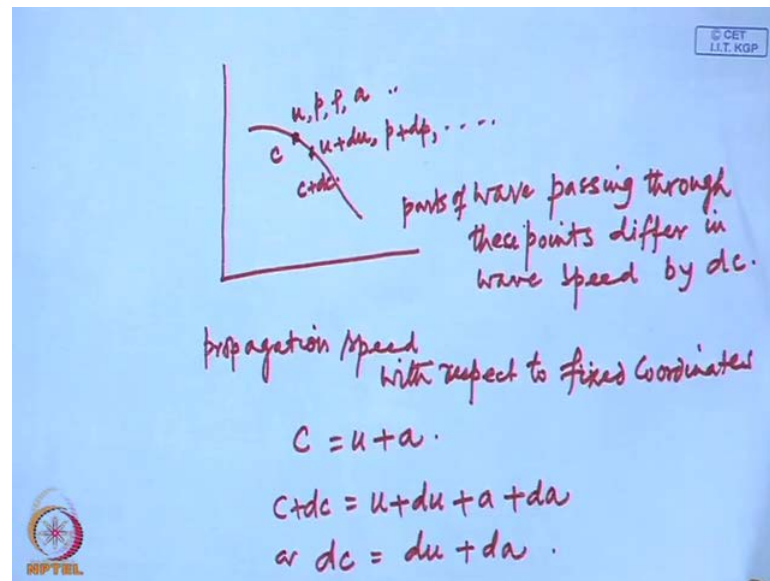 © CET
I.I.T. KGP
u, p, ρ, a ..
c
u+du, p+dp, ....
c+dc.
parts of wave passing through
these points differ in
wave speed by dc.
propagation speed
with respect to fixed coordinates
C = u+a.
c+dc = u+du+a+da
or dc = du+da.
NPTEL